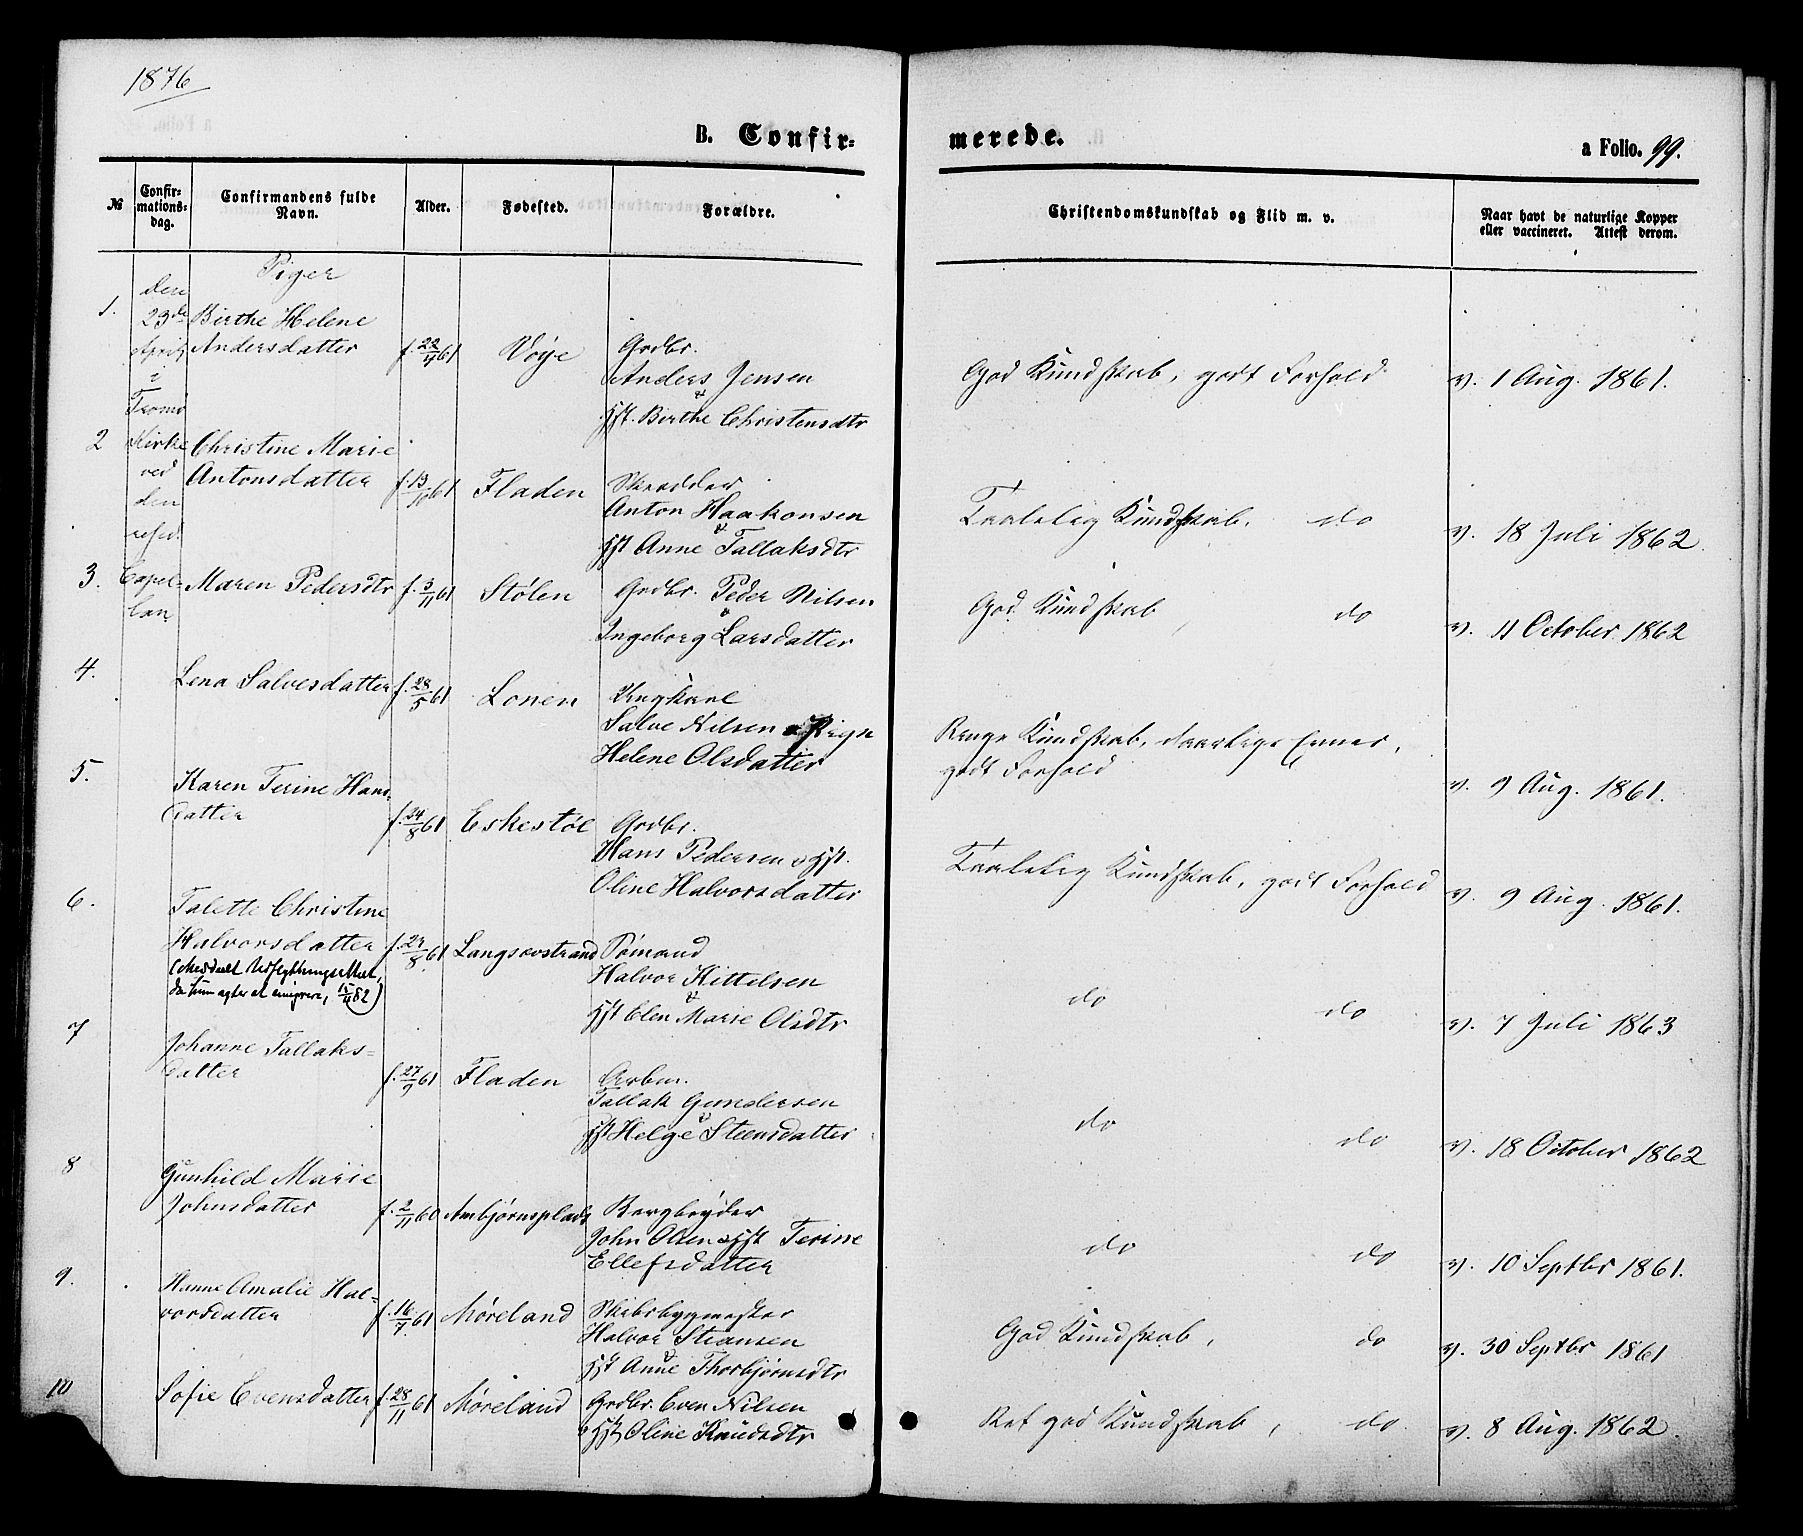 1876
B. Confir-
merede.
a Folio. 99.
№
Confir-
mations-
dag.
Confirmandens fulde
Navn.
Alder.
Fødested.
Forældre.
Christendomskundskab og Flid m. v.
Naar havt de naturlige Kopper
eller vaccineret. Attest derom.
Piger
den
23de
April
i
Tromö
Kirke
ved
den
resid.
Capel-
lan
1. Birthe Helene
Andersdatter f. 22/4 61 Vöye Grdbr.
Anders Jensen
&
Hst. Birthe Christensdtr
God Kundskab, godt Forhold v. 1 Aug. 1861.
2 Christine Marie
Antonsdatter f. 13/10 61 Fladen Skrædder
Anton Haakonsen
&
Hst Anne Tallaksdtr
Taalelig Kundskab, do v. 18 Juli 1862.
3. Maren Pedersdtr f. 3/11 61 Stølen Grdbr. Peder Nilsen
&
Ingeborg Larsdatter
God Kundskab, do v. 11 October 1862
4. Lena Salvesdatter f. 28/5 61 Lonen Ungkarl
Salve Nilsen & Pige
Helene Olsdatter
Ringe Kundskab, daarlige Evner,
godt Forhold v. 9 Aug. 1861.
5. Karen Terine Hans-
datter f. 24/8 61 Eskestøl Grdbr.
Hans Pedersen & Hst.
Oline Halvorsdatter
Taalelig Kundskab, godt Forhold v. 9 Aug. 1861.
6. Talette Christine
Halvorsdatter f. 24/8 61 Langsævstrand Sømand
(Meddelt Udflytningsattest,
da hun agter at emigrere, 15/4 82)
Halvor Kittelsen
&
Hst Elen Marie Olsdtr
do do v. 7 Juli 1863
7 Johanne Tallaks-
datter f. 27/9 61 Fladen Arbm.
Tallak Gundersen
&
Hst Helge Steensdatter
do do v. 18 October 1862
8 Gunhild Marie
Johnsdatter f. 2/11 60 Ambjørnsplads Bergbryder
John Olsen & Hst Terine
Ellefsdatter
do do v. 10 Septbr 1861.
9. Hanne Amalie Hal-
vorsdatter f. 16/7 61 Møreland Skibsbygmester
Halvor Steansen
&
Hst Anne Thorbjørnsdtr
God Kundskab, do v. 30 Septbr 1861
10 Sofie Evensdatter f. 28/11 61 Møreland Grdbr. Even Nilsen
& Hst Oline Knudsdtr
Ret god Kundskab, do. v. 8 Aug. 1862.